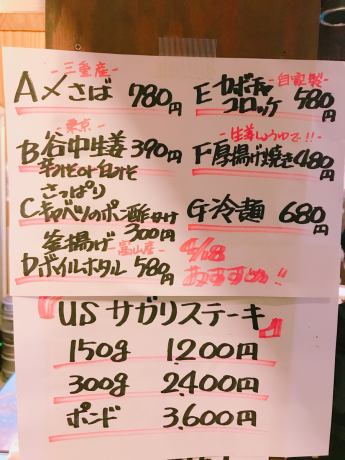 -三重産-
A 〆さば 780円
-東京-
B 谷中生姜 390円
辛みそor白みそ
さっぱり
C キャベツのポン酢がけ
300円
釜揚げ -富山産-
D ボイルホタル 580円
-自家製-
E カボチャコロッケ 580円
-生姜しょうゆで!!-
F 厚揚げ焼き 480円
G 冷麺 680円
4/18
おすすめ!!
USサガリステーキ
150g 1,200円
300g 2,400円
ポンド 3,600円